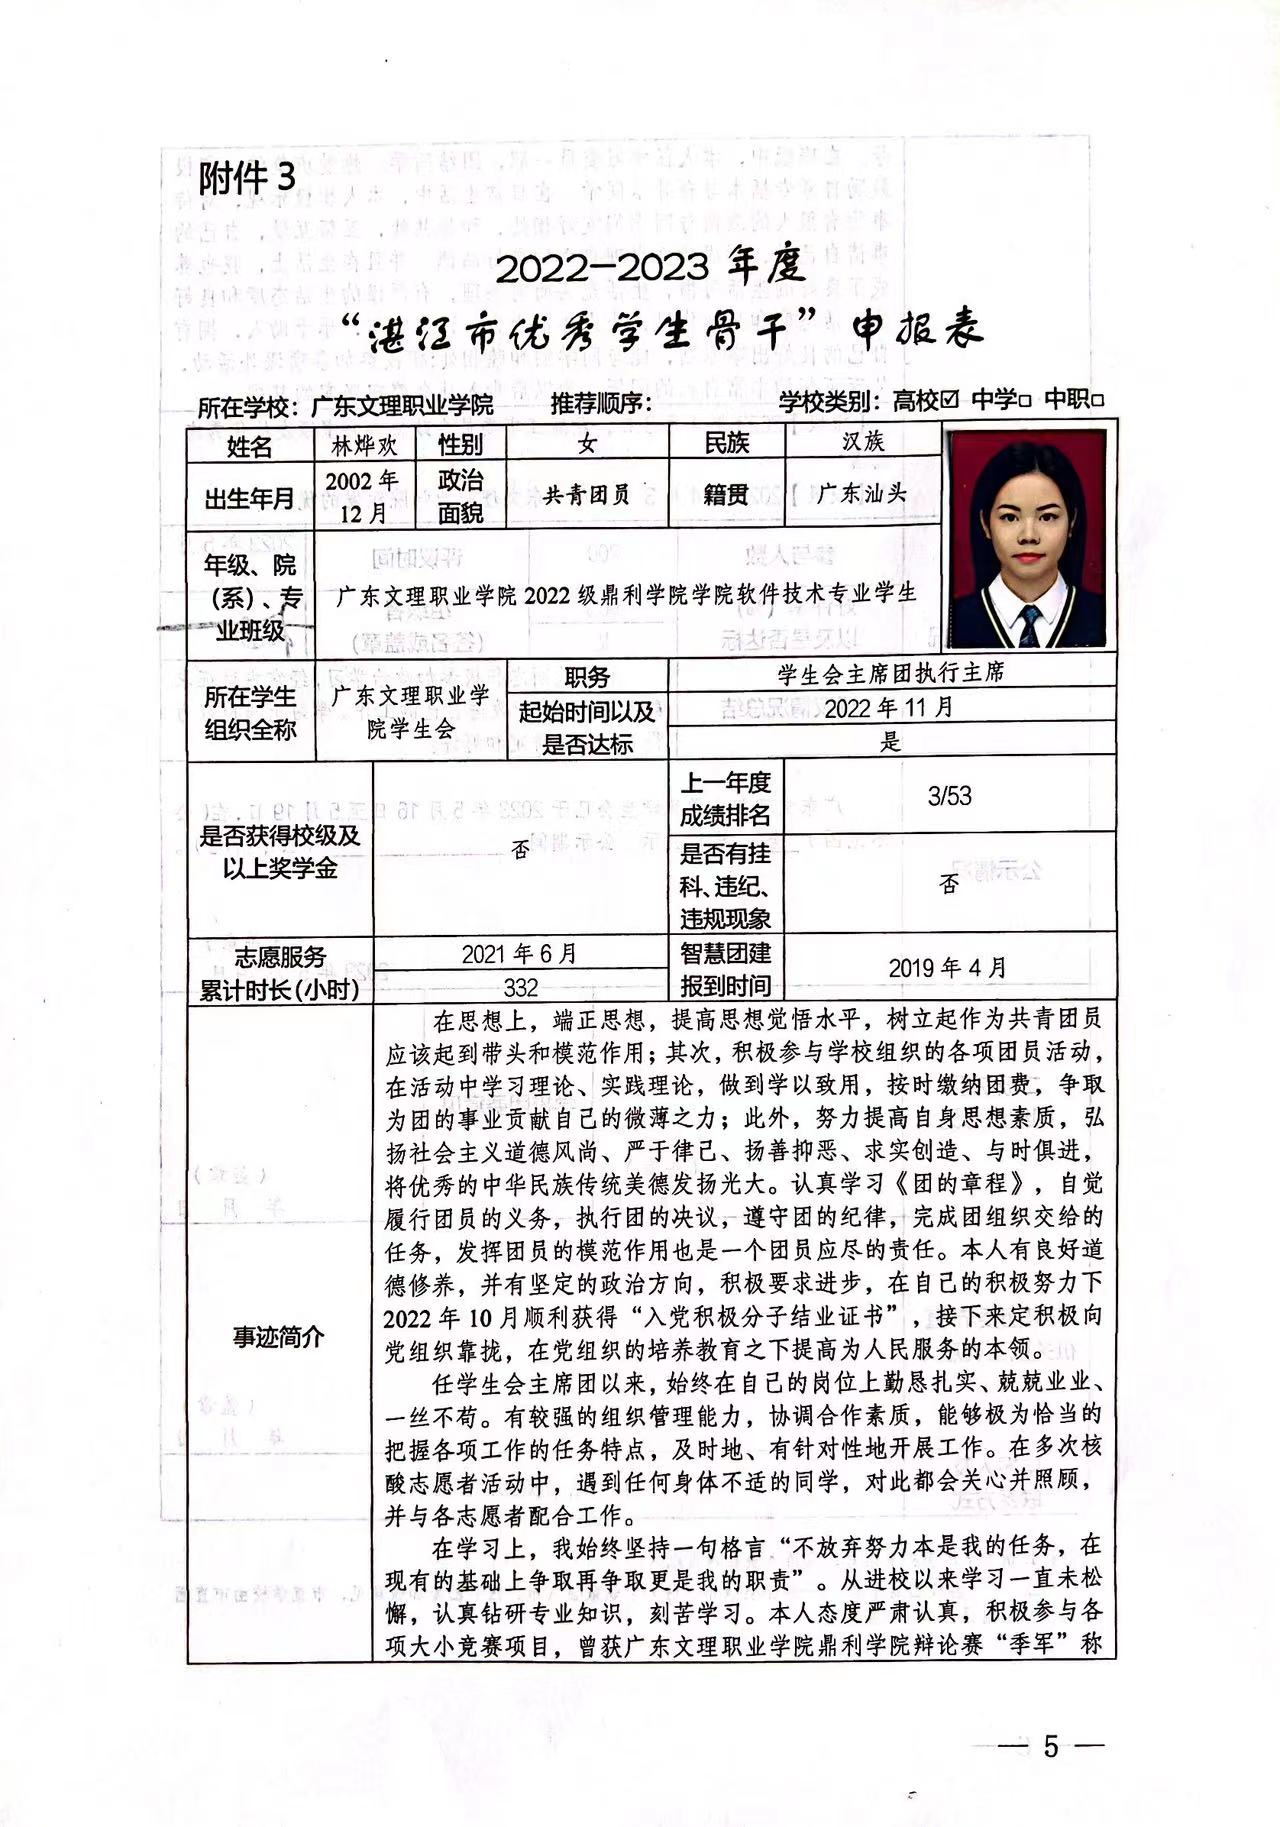 附件 3
2022—2023 年度
“湛江市优秀学生骨干”申报表
所在学校：广东文理职业学院 推荐顺序： 学校类别：高校☑ 中学□ 中职□
姓名 林烨欢 性别 女 民族 汉族
出生年月 2002 年 12 月 政治面貌 共青团员 籍贯 广东汕头
年级、院（系）、专业班级 广东文理职业学院 2022 级鼎利学院学院软件技术专业学生
所在学生组织全称 广东文理职业学院学生会 职务 学生会主席团执行主席
起始时间以及是否达标 2022 年 11 月
是
是否获得校级及以上奖学金 否 上一年度成绩排名 3/53
是否有挂科、违纪、违规现象 否
志愿服务累计时长（小时） 2021 年 6 月 智慧团建报到时间 2019 年 4 月
332
事迹简介
在思想上，端正思想，提高思想觉悟水平，树立起作为共青团员
应该起到带头和模范作用；其次，积极参与学校组织的各项团员活动，
在活动中学习理论、实践理论，做到学以致用，按时缴纳团费，争取
为团的事业贡献自己的微薄之力；此外，努力提高自身思想素质，弘
扬社会主义道德风尚、严于律己、扬善抑恶、求实创造、与时俱进，
将优秀的中华民族传统美德发扬光大。认真学习《团的章程》，自觉
履行团员的义务，执行团的决议，遵守团的纪律，完成团组织交给的
任务，发挥团员的模范作用也是一个团员应尽的责任。本人有良好道
德修养，并有坚定的政治方向，积极要求进步，在自己的积极努力下
2022 年 10 月顺利获得“入党积极分子结业证书”，接下来定积极向
党组织靠拢，在党组织的培养教育之下提高为人民服务的本领。
任学生会主席团以来，始终在自己的岗位上勤恳扎实、兢兢业业、
一丝不苟。有较强的组织管理能力，协调合作素质，能够极为恰当的
把握各项工作的任务特点，及时地、有针对性地开展工作。在多次核
酸志愿者活动中，遇到任何身体不适的同学，对此都会关心并照顾，
并与各志愿者配合工作。
在学习上，我始终坚持一句格言“不放弃努力本是我的任务，在
现有的基础上争取再争取更是我的职责”。从进校以来学习一直未松
懈，认真钻研专业知识，刻苦学习。本人态度严肃认真，积极参与各
项大小竞赛项目，曾获广东文理职业学院鼎利学院辩论赛“季军”称
— 5 —